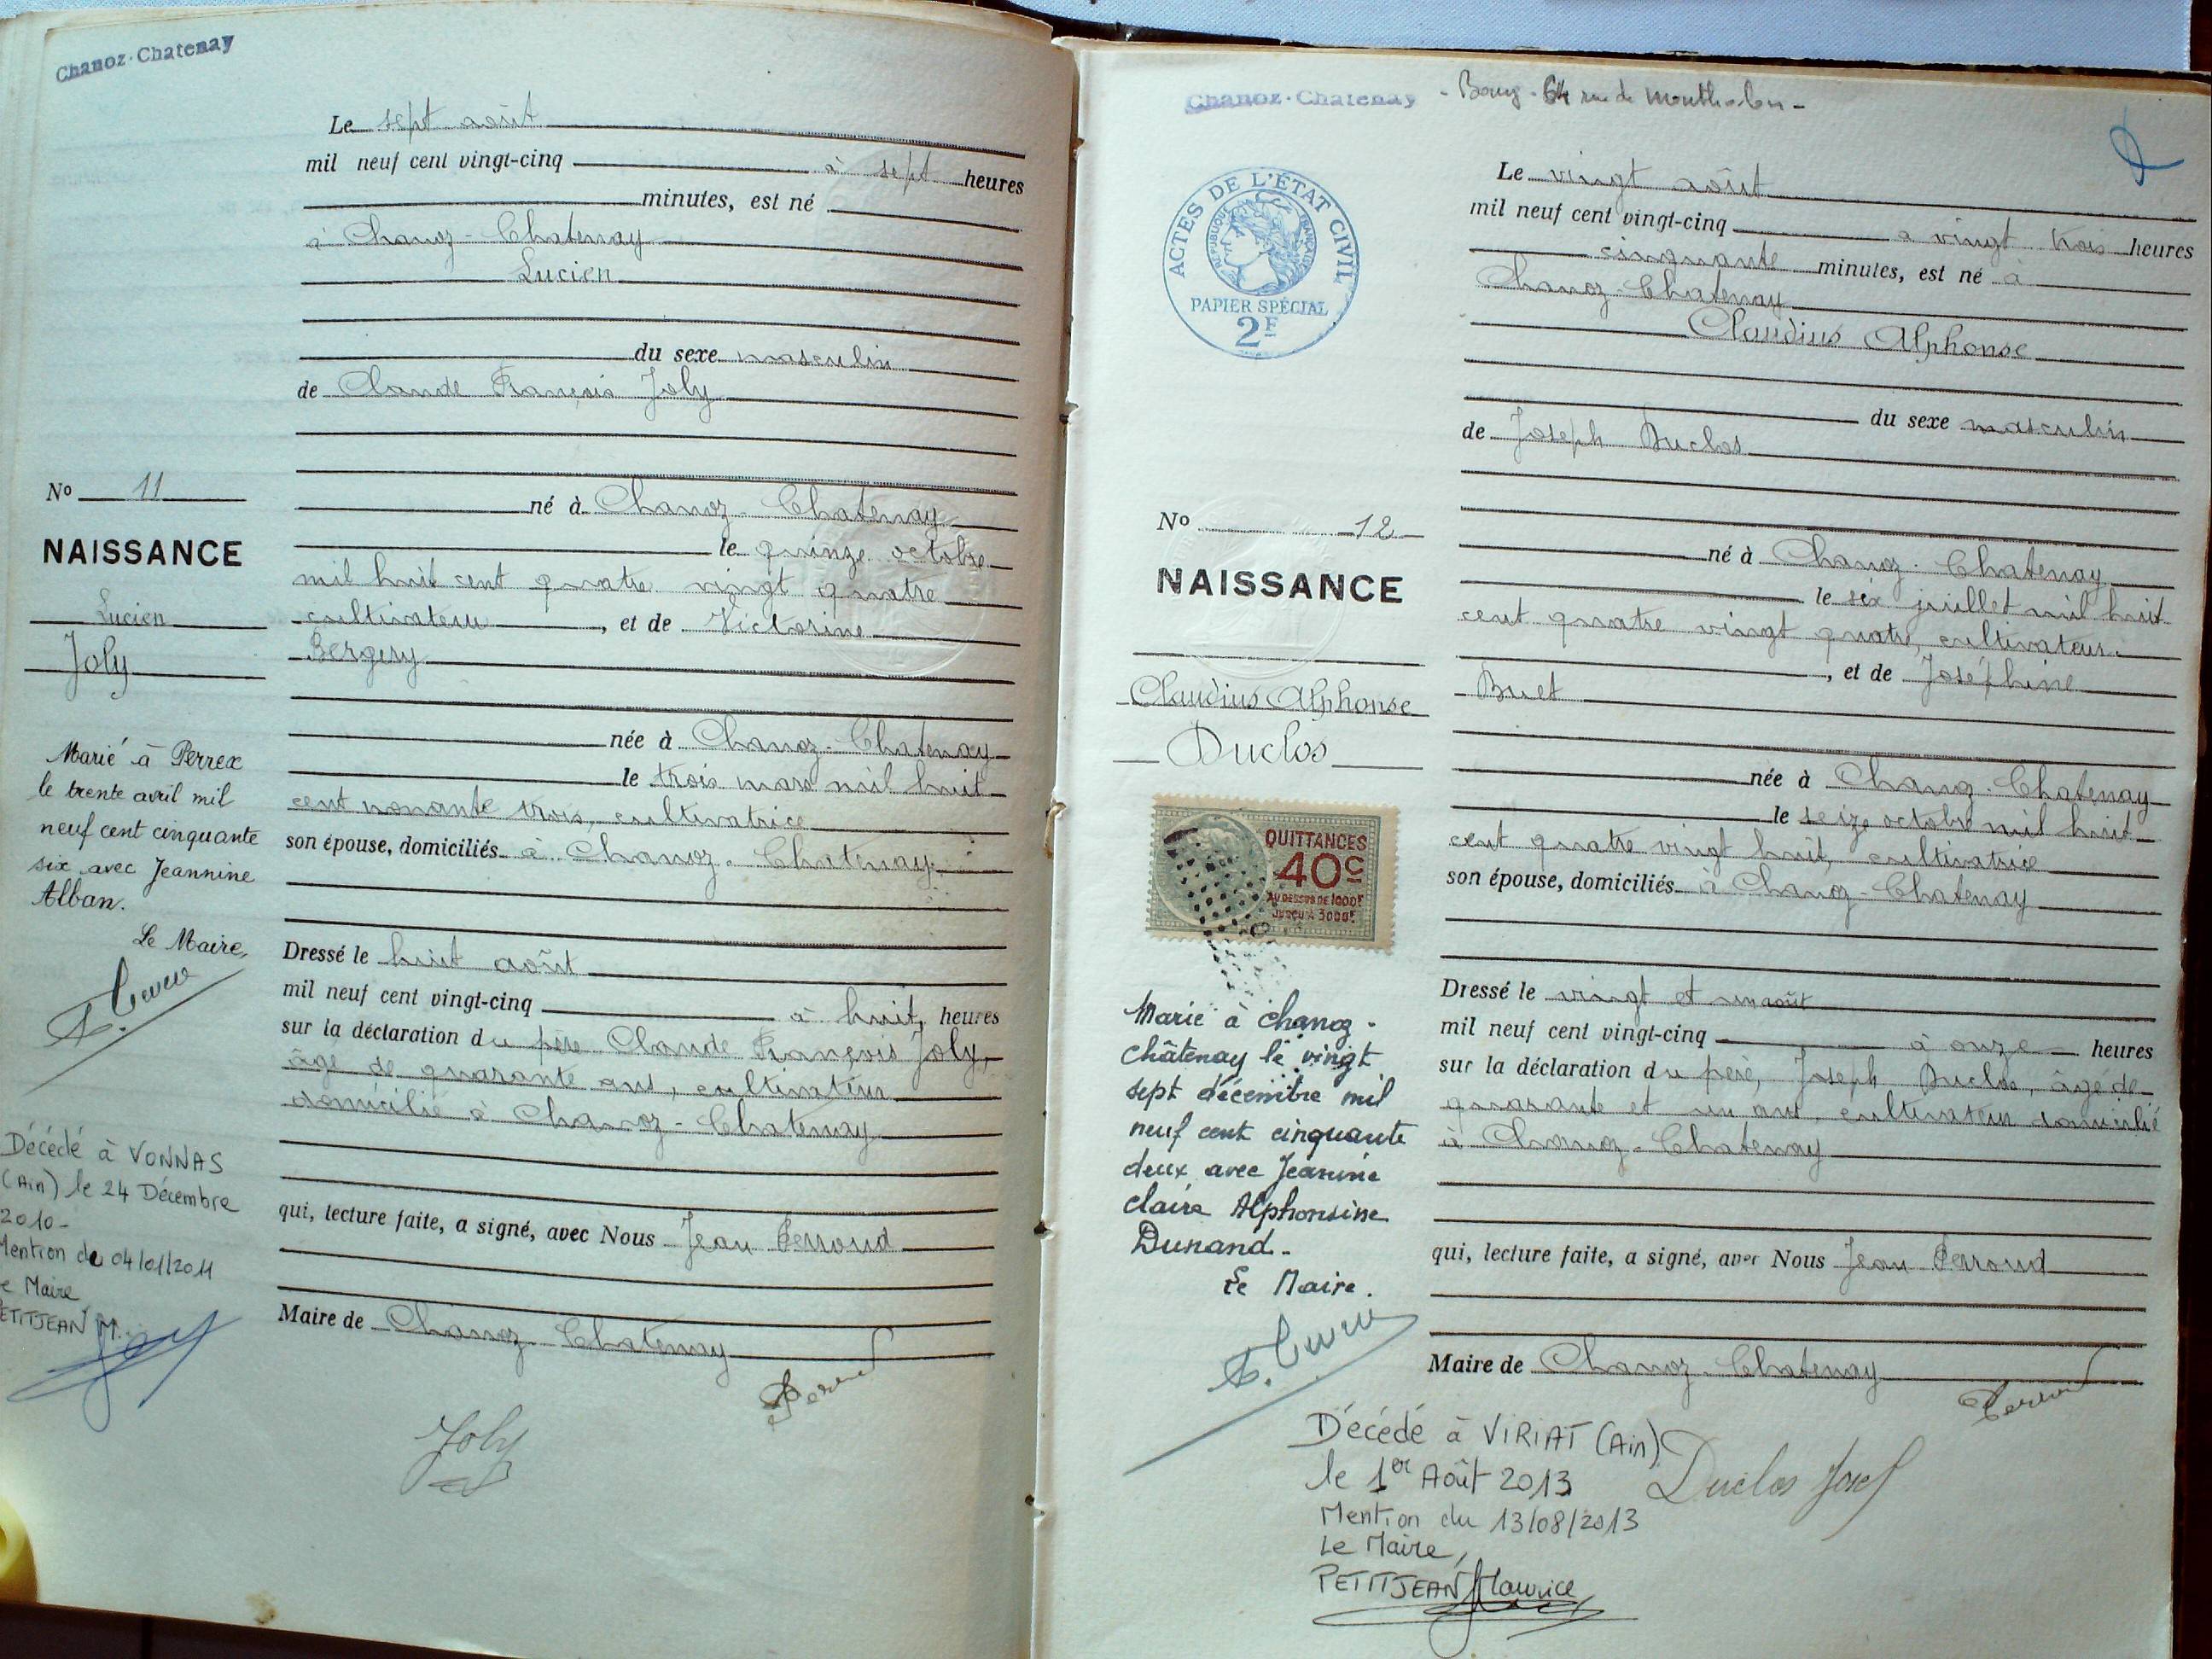 Chanoz-Chatenay
Le sept août
mil neuf cent vingt-cinq à sept heures
minutes, est né
à Chanoz-Chatenay
Lucien
du sexe masculin
de Claude François Joly
né à Chanoz-Chatenay
le quinze octobre
mil huit cent quatre vingt quatre
cultivateur, et de Victorine
Bergery
née à Chanoz-Chatenay
le trois mars mil huit
cent nonante trois, cultivatrice
son épouse, domiciliés à Chanoz-Chatenay
Dressé le huit août
mil neuf cent vingt-cinq à huit heures
sur la déclaration du père Claude François Joly,
âgé de quarante ans, cultivateur
domicilié à Chanoz-Chatenay
qui, lecture faite, a signé, avec Nous Jean Perroud
Maire de Chanoz-Chatenay
Perroud
Joly
No 11
NAISSANCE
Lucien
Joly
Marié à Perrex
le trente avril mil
neuf cent cinquante
six avec Jeannine
Alban.
Le Maire,
Décédé à VONNAS
(Ain) le 24 Décembre
2010-
Mention du 04/01/2011
Le Maire
PETITJEAN M.
Chanoz-Chatenay - Bourg - 64 rue de Montholon -
ACTES DE L'ÉTAT CIVIL
RÉPUBLIQUE FRANÇAISE
PAPIER SPÉCIAL
2F
Le vingt août
mil neuf cent vingt-cinq à vingt trois heures
cinquante minutes, est né à
Chanoz-Chatenay
Claudius Alphonse
du sexe masculin
de Joseph Duclos
né à Chanoz-Chatenay
le six juillet mil huit
cent quatre vingt quatre, cultivateur
, et de Joséphine
Buet
née à Chanoz-Chatenay
le seize octobre mil huit
cent quatre vingt huit, cultivatrice
son épouse, domiciliés à Chanoz-Chatenay
Dressé le vingt et un août
mil neuf cent vingt-cinq à onze heures
sur la déclaration du père, Joseph Duclos, âgé de
quarante et un ans, cultivateur domicilié
à Chanoz-Chatenay
qui, lecture faite, a signé, avec Nous Jean Perroud
Maire de Chanoz-Chatenay
Perroud
Duclos Josef
No 12
NAISSANCE
Claudius Alphonse
Duclos
QUITTANCES
40c
AU DESSUS DE 1000F
JUSQU'À 3000F
Marié à Chanoz-
Châtenay le vingt
sept décembre mil
neuf cent cinquante
deux avec Jeanine
Claire Alphonsine
Dunand-
Le Maire.
Décédé à VIRIAT (Ain)
le 1er Août 2013
Mention du 13/08/2013
Le Maire,
PETITJEAN Maurice